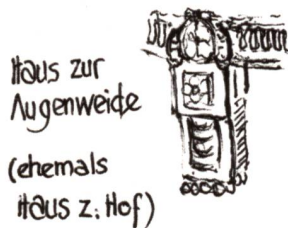 Haus zur
Augenweide
(ehemals
Haus z. Hof)